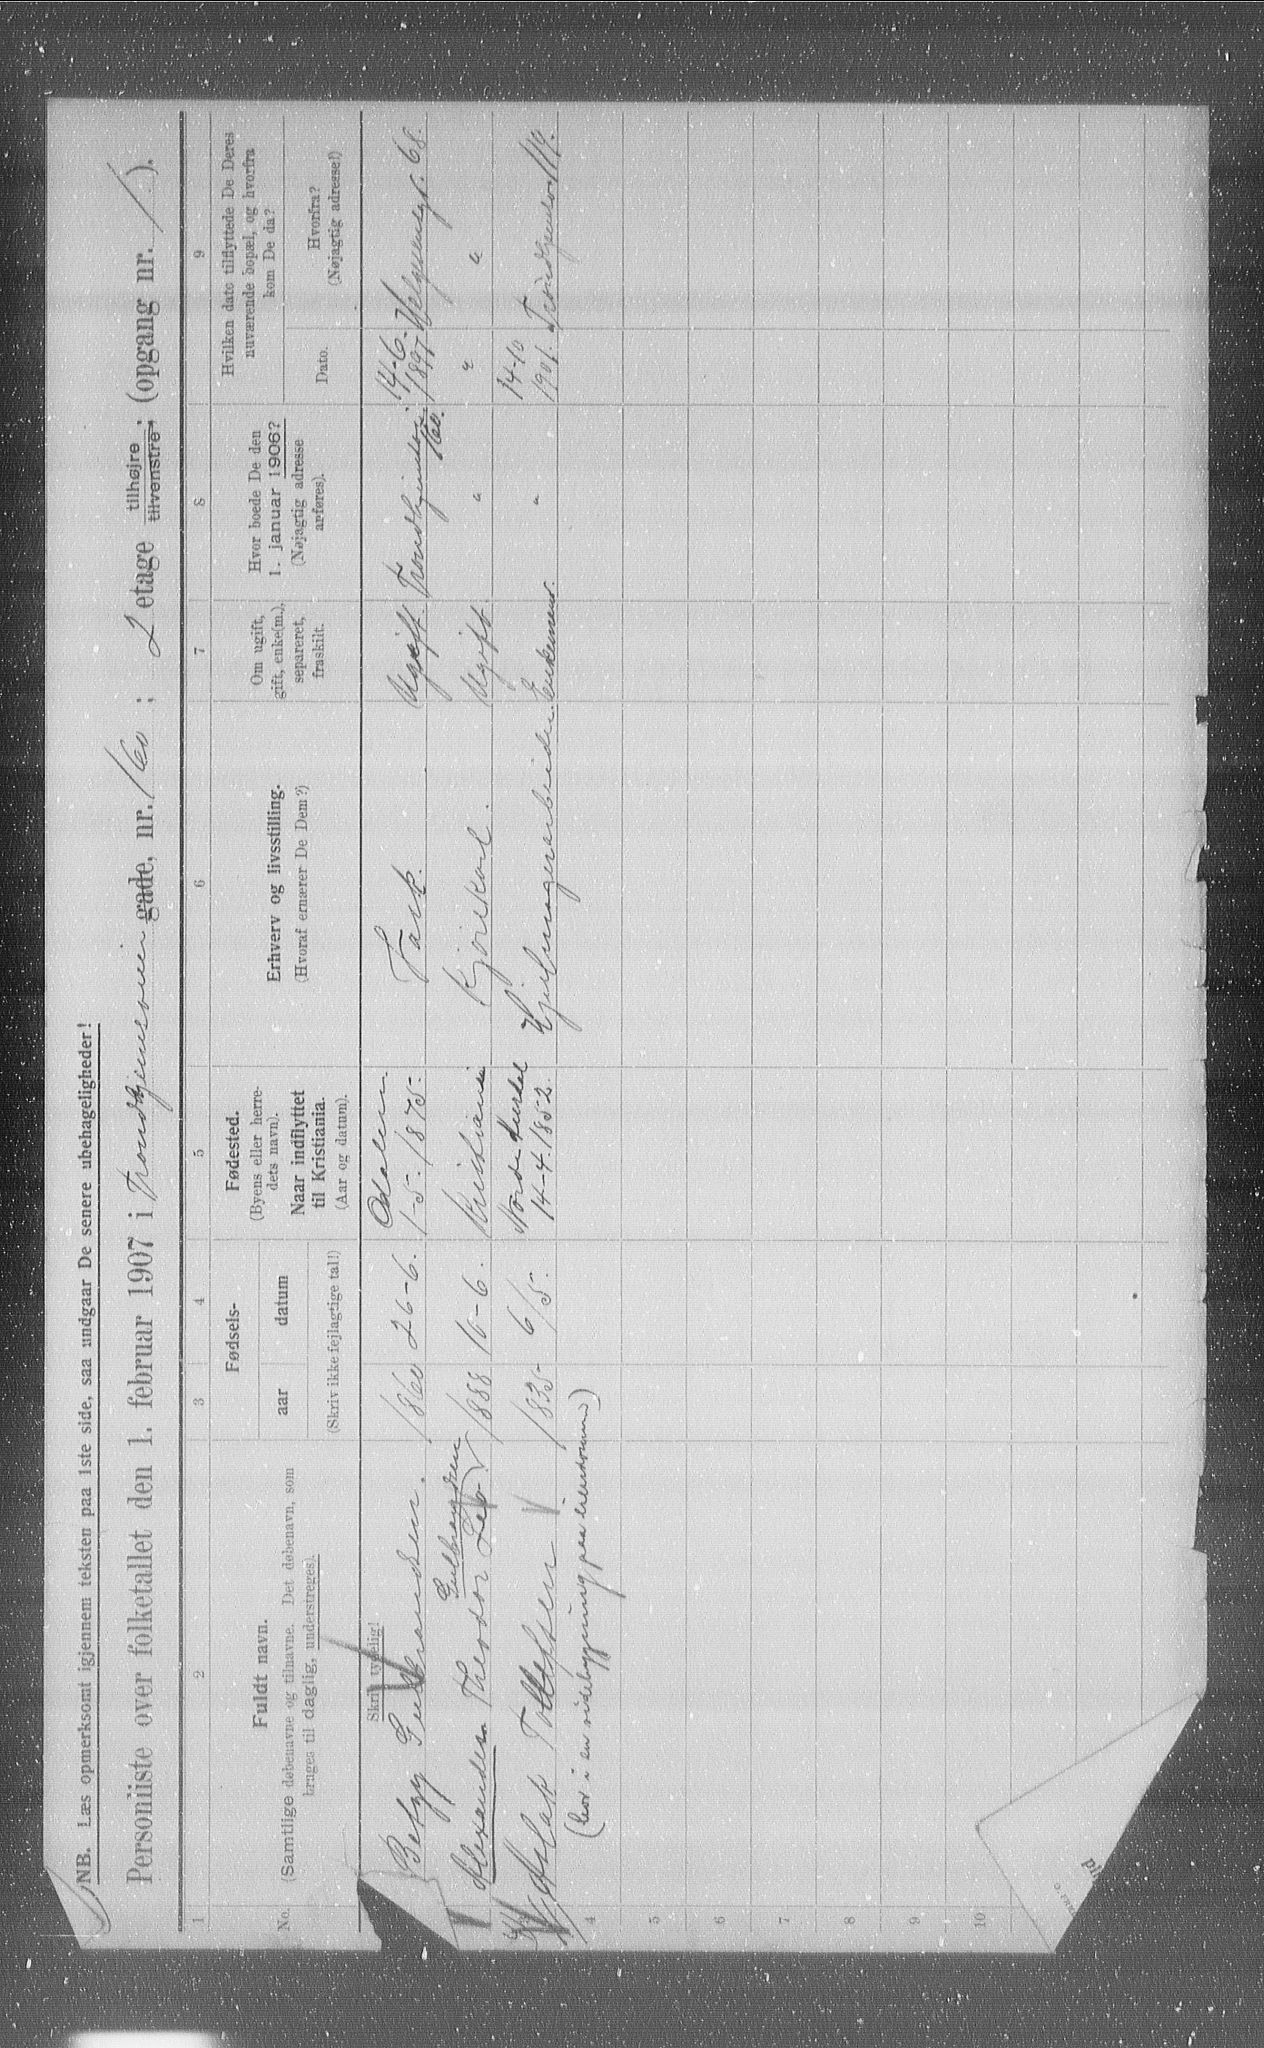 NB. Læs opmerksomt igjennem teksten paa 1ste side, saa undgaar De senere ubehageligheder!
Personliste over folketallet den 1. februar 1907 i Trondhjemsveien gade, nr. 160 ; 2 etage tilhøjre tilvenstre, (opgang nr. / ).
1 2 3 4 5 6 7 8 9
No.
Fuldt navn.
(Samtlige døbenavne og tilnavne. Det døbenavn, som
bruges til daglig, understreges).
Skriv tydelig!
Fødsels-
aar datum
(Skriv ikke fejlagtige tal!)
Fødested.
(Byens eller herre-
dets navn).
Naar indflyttet
til Kristiania.
(Aar og datum).
Erhverv og livsstilling.
(Hvoraf ernærer De Dem?)
Om ugift,
gift, enke(m.),
separeret,
fraskilt.
Hvor boede De den
1. januar 1906?
(Nøjagtig adresse
anføres).
Hvilken dato tilflyttede De Deres
nuværende bopæl, og hvorfra
kom De da?
Dato.
Hvorfra?
(Nøjagtig adresse!)
Betzy Gulbrandsen. 1860 26-6. Odalen 1-5-1875. Vask. Ugift. Trondhjemsvei 160. 14-6-1897 Helgesensgt. 68.
Alexander Theodor Gulbrandsen 1888 10-6. Kristiania Kjørekarl. Ugift. " " "
Aslak Tollefsen 1835 6/5. 14-4.1852. Hjulmagerarbeider. Enkemand. " 14-10 1901. Trondhjemsv. 119.
(bor i en sidebygning paa eiendommen)
4
5
6
7
8
9
10